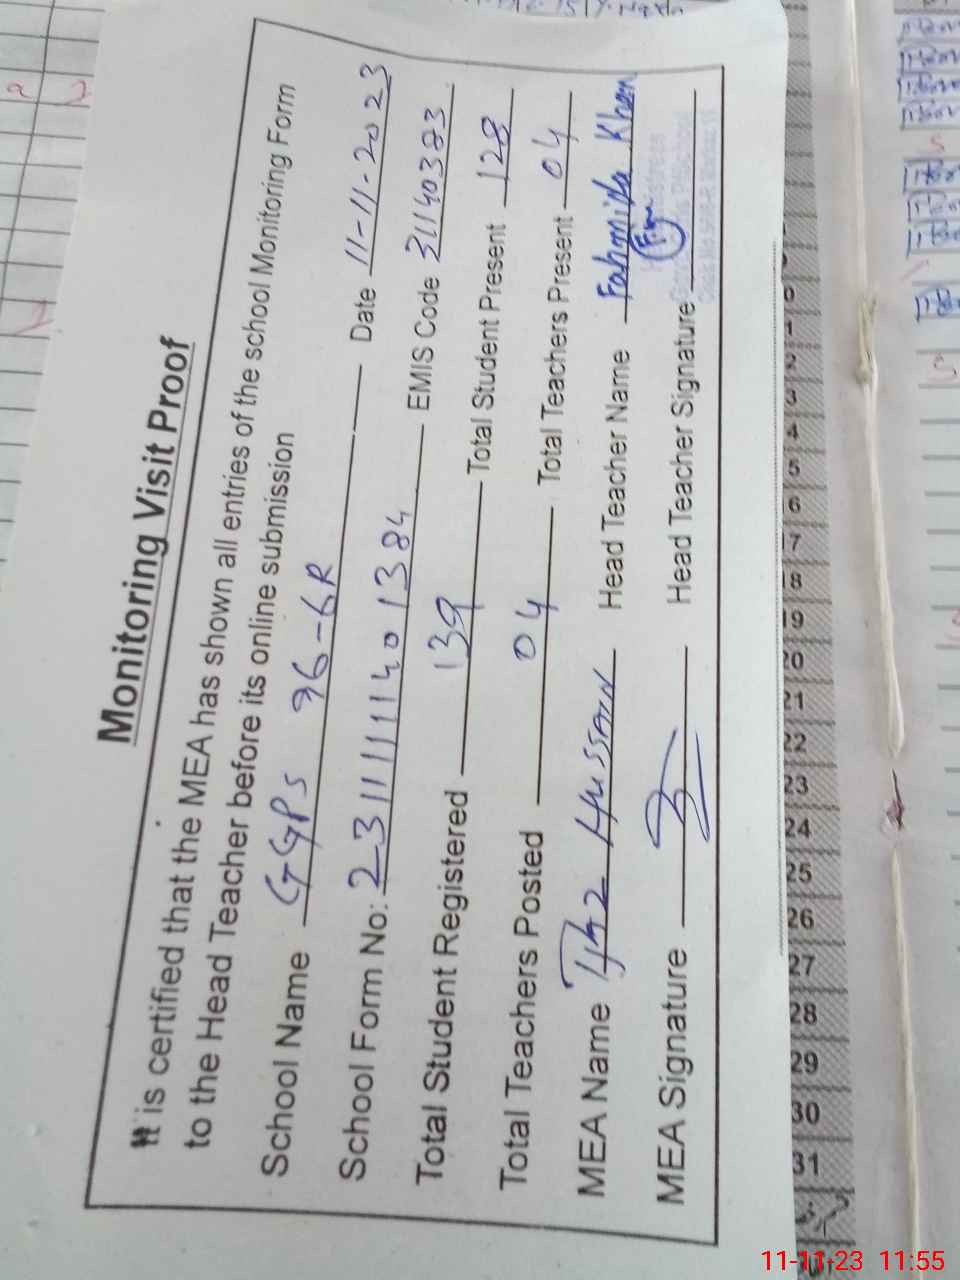 Monitoring Visit Proof
It is certified that the MEA has shown all entries of the school Monitoring Form
to the Head Teacher before its online submission
School Name GGPS 96-6R Date 11-11-2023
School Form No: 2311111401384 EMIS Code 31140383
Total Student Registered 139 Total Student Present 128
Total Teachers Posted 04 Total Teachers Present 04
MEA Name Hussain Head Teacher Name Fahmida Khan
MEA Signature Head Teacher Signature
0
1
2
3
4
5
6
17
18
19
20
21
22
23
24
25
26
27
28
29
30
31
11-11-23 11:55